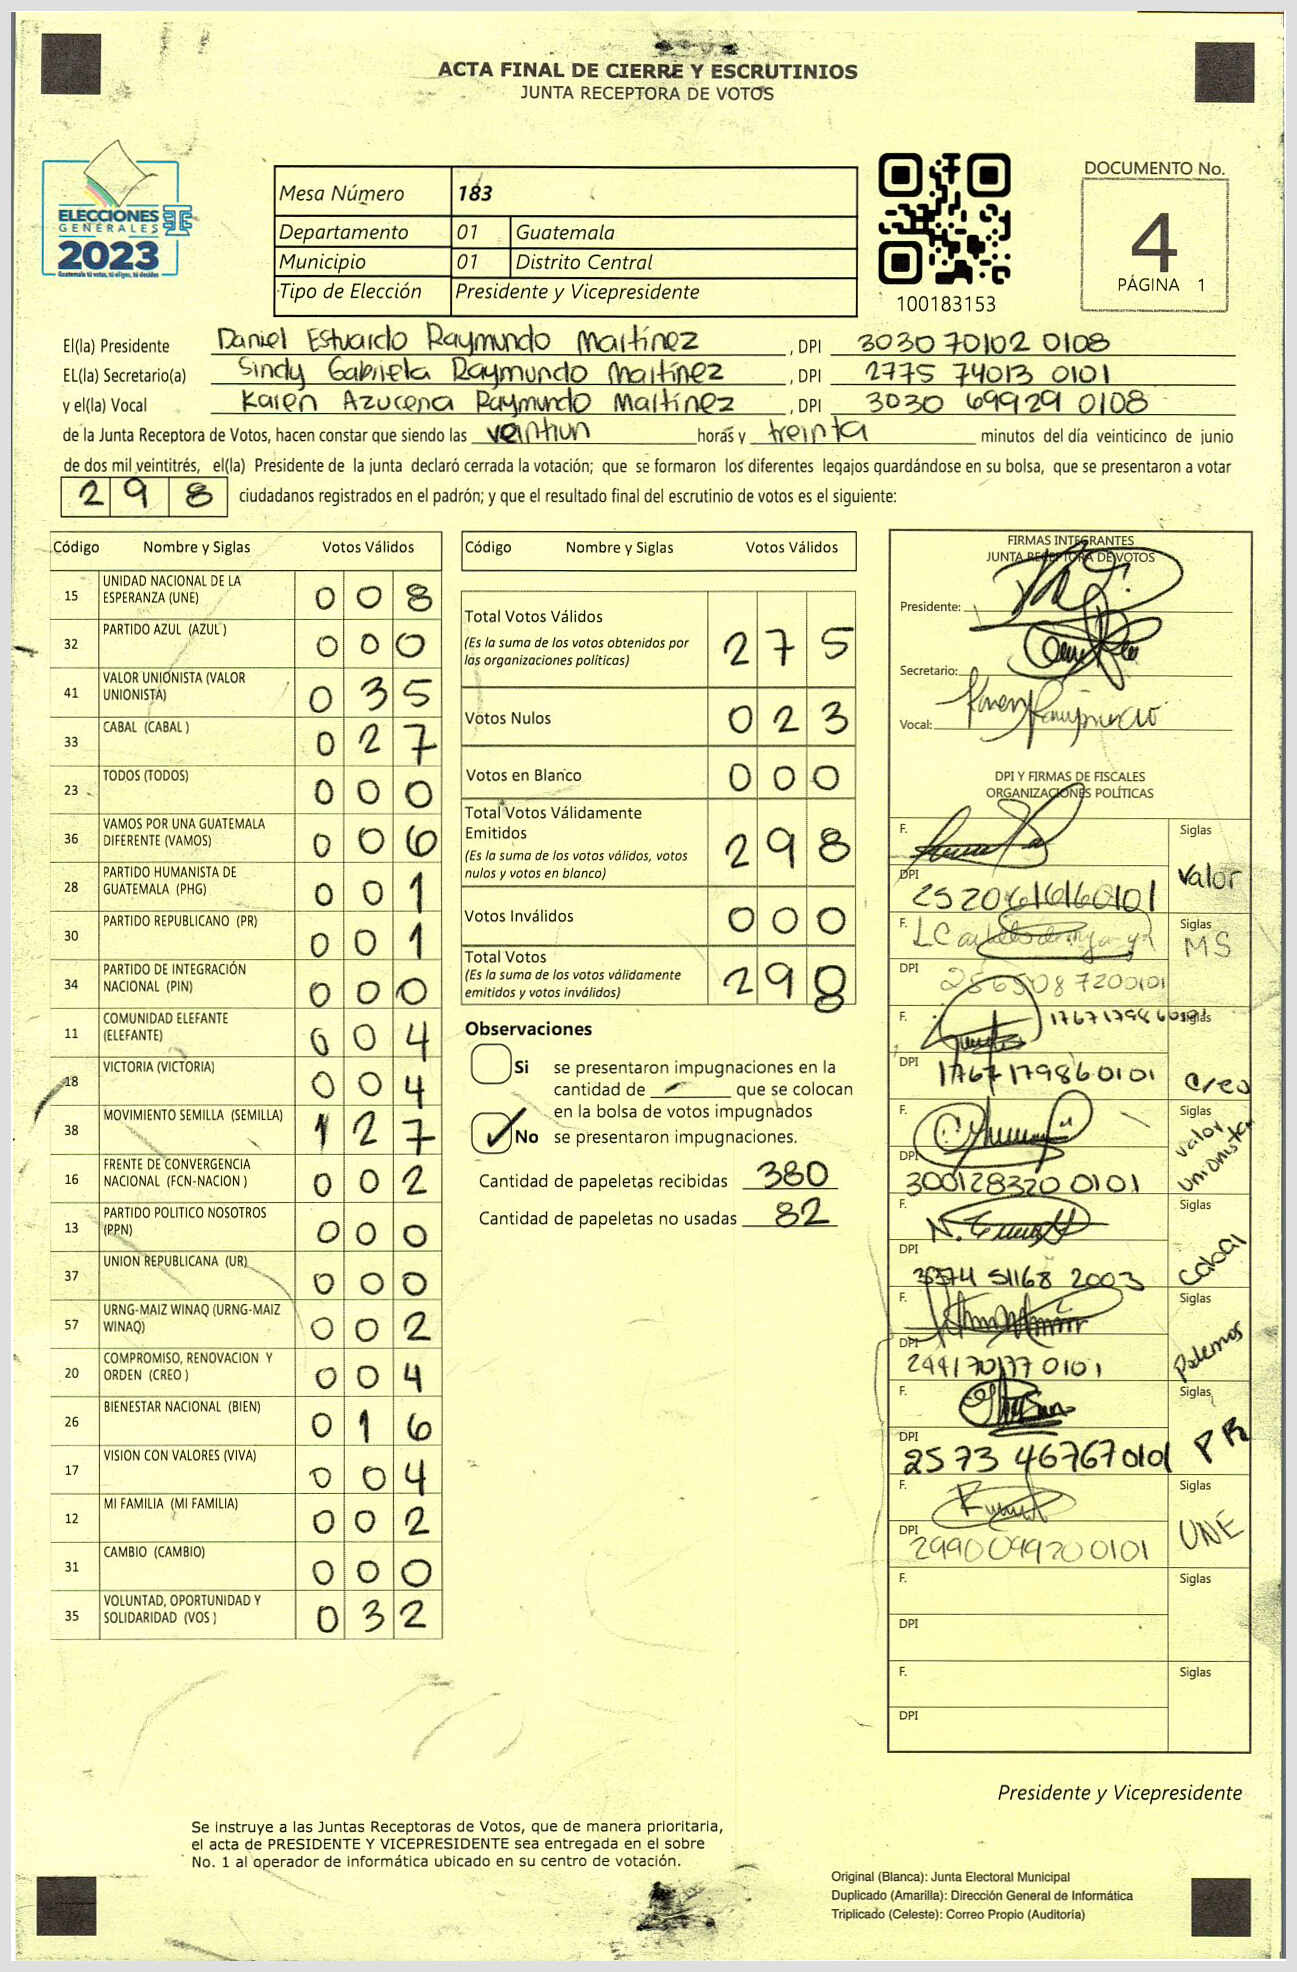 ACTA FINAL DE CIERRE Y ESCRUTINIOS
JUNTA RECEPTORA DE VOTOS
ELECCIONES
GENERALES
2023
Guatemala tú votas, tú eliges, tú decides
Mesa Número 183
Departamento 01 Guatemala
Municipio 01 Distrito Central
Tipo de Elección Presidente y Vicepresidente
100183153
DOCUMENTO No.
4
PÁGINA 1
El(la) Presidente Daniel Estuardo Raymundo Martínez , DPI 3030 70102 0108
EL(la) Secretario(a) Sindy Gabriela Raymundo Martínez , DPI 2775 74013 0101
y el(la) Vocal Karen Azucena Raymundo Martínez , DPI 3030 69929 0108
de la Junta Receptora de Votos, hacen constar que siendo las veintiun horas y treinta minutos del día veinticinco de junio
de dos mil veintitrés, el(la) Presidente de la junta declaró cerrada la votación; que se formaron los diferentes legajos quardándose en su bolsa, que se presentaron a votar
298 ciudadanos registrados en el padrón; y que el resultado final del escrutinio de votos es el siguiente:
Código Nombre y Siglas Votos Válidos
15 UNIDAD NACIONAL DE LA
ESPERANZA (UNE) 0 0 8
32 PARTIDO AZUL (AZUL ) 0 0 0
41 VALOR UNIONISTA (VALOR
UNIONISTA) 0 3 5
33 CABAL (CABAL ) 0 2 7
23 TODOS (TODOS) 0 0 0
36 VAMOS POR UNA GUATEMALA
DIFERENTE (VAMOS) 0 0 6
28 PARTIDO HUMANISTA DE
GUATEMALA (PHG) 0 0 1
30 PARTIDO REPUBLICANO (PR) 0 0 1
34 PARTIDO DE INTEGRACIÓN
NACIONAL (PIN) 0 0 0
11 COMUNIDAD ELEFANTE
(ELEFANTE) 0 0 4
18 VICTORIA (VICTORIA) 0 0 4
38 MOVIMIENTO SEMILLA (SEMILLA) 1 2 7
16 FRENTE DE CONVERGENCIA
NACIONAL (FCN-NACION ) 0 0 2
13 PARTIDO POLITICO NOSOTROS
(PPN) 0 0 0
37 UNION REPUBLICANA (UR) 0 0 0
57 URNG-MAIZ WINAQ (URNG-MAIZ
WINAQ) 0 0 2
20 COMPROMISO, RENOVACION Y
ORDEN (CREO ) 0 0 4
26 BIENESTAR NACIONAL (BIEN) 0 1 6
17 VISION CON VALORES (VIVA) 0 0 4
12 MI FAMILIA (MI FAMILIA) 0 0 2
31 CAMBIO (CAMBIO) 0 0 0
35 VOLUNTAD, OPORTUNIDAD Y
SOLIDARIDAD (VOS ) 0 3 2
Código Nombre y Siglas Votos Válidos
Total Votos Válidos 2 7 5
(Es la suma de los votos obtenidos por
las organizaciones políticas)
Votos Nulos 0 2 3
Votos en Blanco 0 0 0
Total Votos Válidamente
Emitidos 2 9 8
(Es la suma de los votos válidos, votos
nulos y votos en blanco)
Votos Inválidos 0 0 0
Total Votos 2 9 8
(Es la suma de los votos válidamente
emitidos y votos inválidos)
Observaciones
Si se presentaron impugnaciones en la
cantidad de que se colocan
en la bolsa de votos impugnados
No se presentaron impugnaciones.
Cantidad de papeletas recibidas 380
Cantidad de papeletas no usadas 82
FIRMAS INTEGRANTES
JUNTA RECEPTORA DE VOTOS
Presidente:
Secretario:
Vocal: Karen Raymundo
DPI Y FIRMAS DE FISCALES
ORGANIZACIONES POLÍTICAS
F. Siglas
Valor
DPI
2520616160101
F. Siglas
MS
DPI
F. 1767179860101 Siglas
DPI 1767179860101 Creo
F. Siglas
Valor
Unionista
DPI
3001283200101
F. Siglas
Cabal
DPI
51168 2003
F. Siglas
Podemos
DPI
F. Siglas
PR
DPI
2573 467670101
F. Siglas
UNE
DPI
2990099200101
F. Siglas
DPI
F. Siglas
DPI
Presidente y Vicepresidente
Se instruye a las Juntas Receptoras de Votos, que de manera prioritaria,
el acta de PRESIDENTE Y VICEPRESIDENTE sea entregada en el sobre
No. 1 al operador de informática ubicado en su centro de votación.
Original (Blanca): Junta Electoral Municipal
Duplicado (Amarilla): Dirección General de Informática
Triplicado (Celeste): Correo Propio (Auditoría)